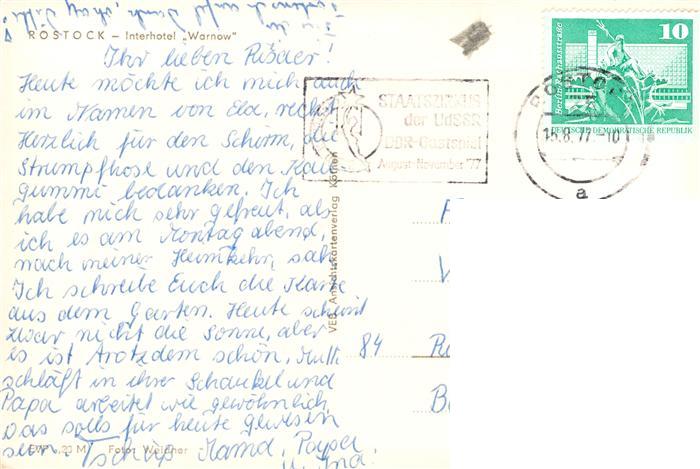 ROSTOCK – Interhotel „Warnow"
Ihr lieben
Heute möchte ich mich auch
im Namen von Eva, recht
Herzlich für den Schirm, die
Strumpfhose und den Kau-
gummi bedanken. Ich
habe mich sehr gefreut, als
ich es am Montag abend,
nach meiner Heimkehr, sah.
Ich schreibe Euch die Karte
aus dem Garten. Heute scheint
zwar nicht die Sonne, aber
es ist trotzdem schön. Mutti
schläft in ihrer Schaukel und
Papa arbeitet wie gewöhnlich.
Das solls für heute gewesen
sein. Tschüß
u.
EVP 0,20 M Foto: Weidner
VEB Ansichtskartenverlag Köthen
STAATSZIRKUS
der UdSSR
DDR-Gastspiel
August-November '77
ROSTOCK
15.8.77-10
a
10
Berlin, Rathausstraße
DEUTSCHE DEMOKRATISCHE REPUBLIK
84